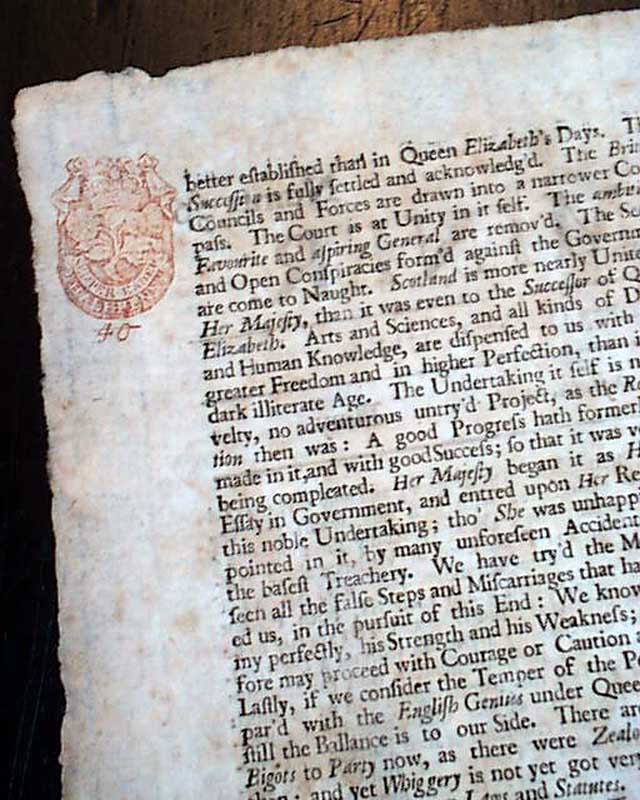 better eſtabliſhed than in Queen Elizabeth's Days.
Succeſſion is fully ſettled and acknowledg'd. The
Councils and Forces are drawn into a narrower
paſs. The Court is at Unity in it ſelf. The
Favourite and aſpiring General are remov'd. The
and Open Conſpiracies form'd againſt the
are come to Naught. Scotland is more nearly
Her Majeſty, than it was even to the Succeſſor of
Elizabeth. Arts and Sciences, and all kinds of
and Human Knowledge, are diſpenſed to us with
greater Freedom and in higher Perfection, than
dark illiterate Age. The Undertaking it ſelf is
velty, no adventurous untry'd Project, as the
tion then was: A good Progreſs hath
made in it, and with good Succeſs; ſo that it was
being compleated. Her Majeſty began it as
Eſſay in Government, and entred upon Her
this noble Undertaking; tho' She was
pointed in it, by many unforeſeen
the baſeſt Treachery. We have try'd the
ſeen all the falſe Steps and Miſcarriages that
ed us, in the purſuit of this End: We know
my perfectly, his Strength and his Weakneſs;
fore may proceed with Courage or Caution
Laſtly, if we conſider the Temper of the
par'd with the Engliſh Genius under
ſtill the Ballance is to our Side. There
Bigots to Party now, as there were
and yet Whiggery is not yet got
Laws and Statutes.
40